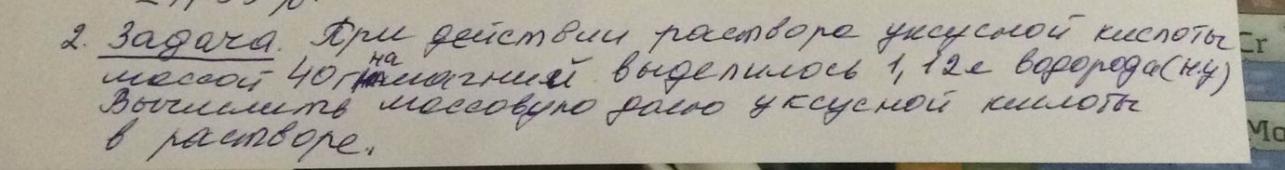 2. Задача. При действии раствора уксусной кислоты
массой 40г на магний выделилось 1,12л водорода (н.у)
Вычислить массовую долю уксусной кислоты
в растворе.
Cr
Mo